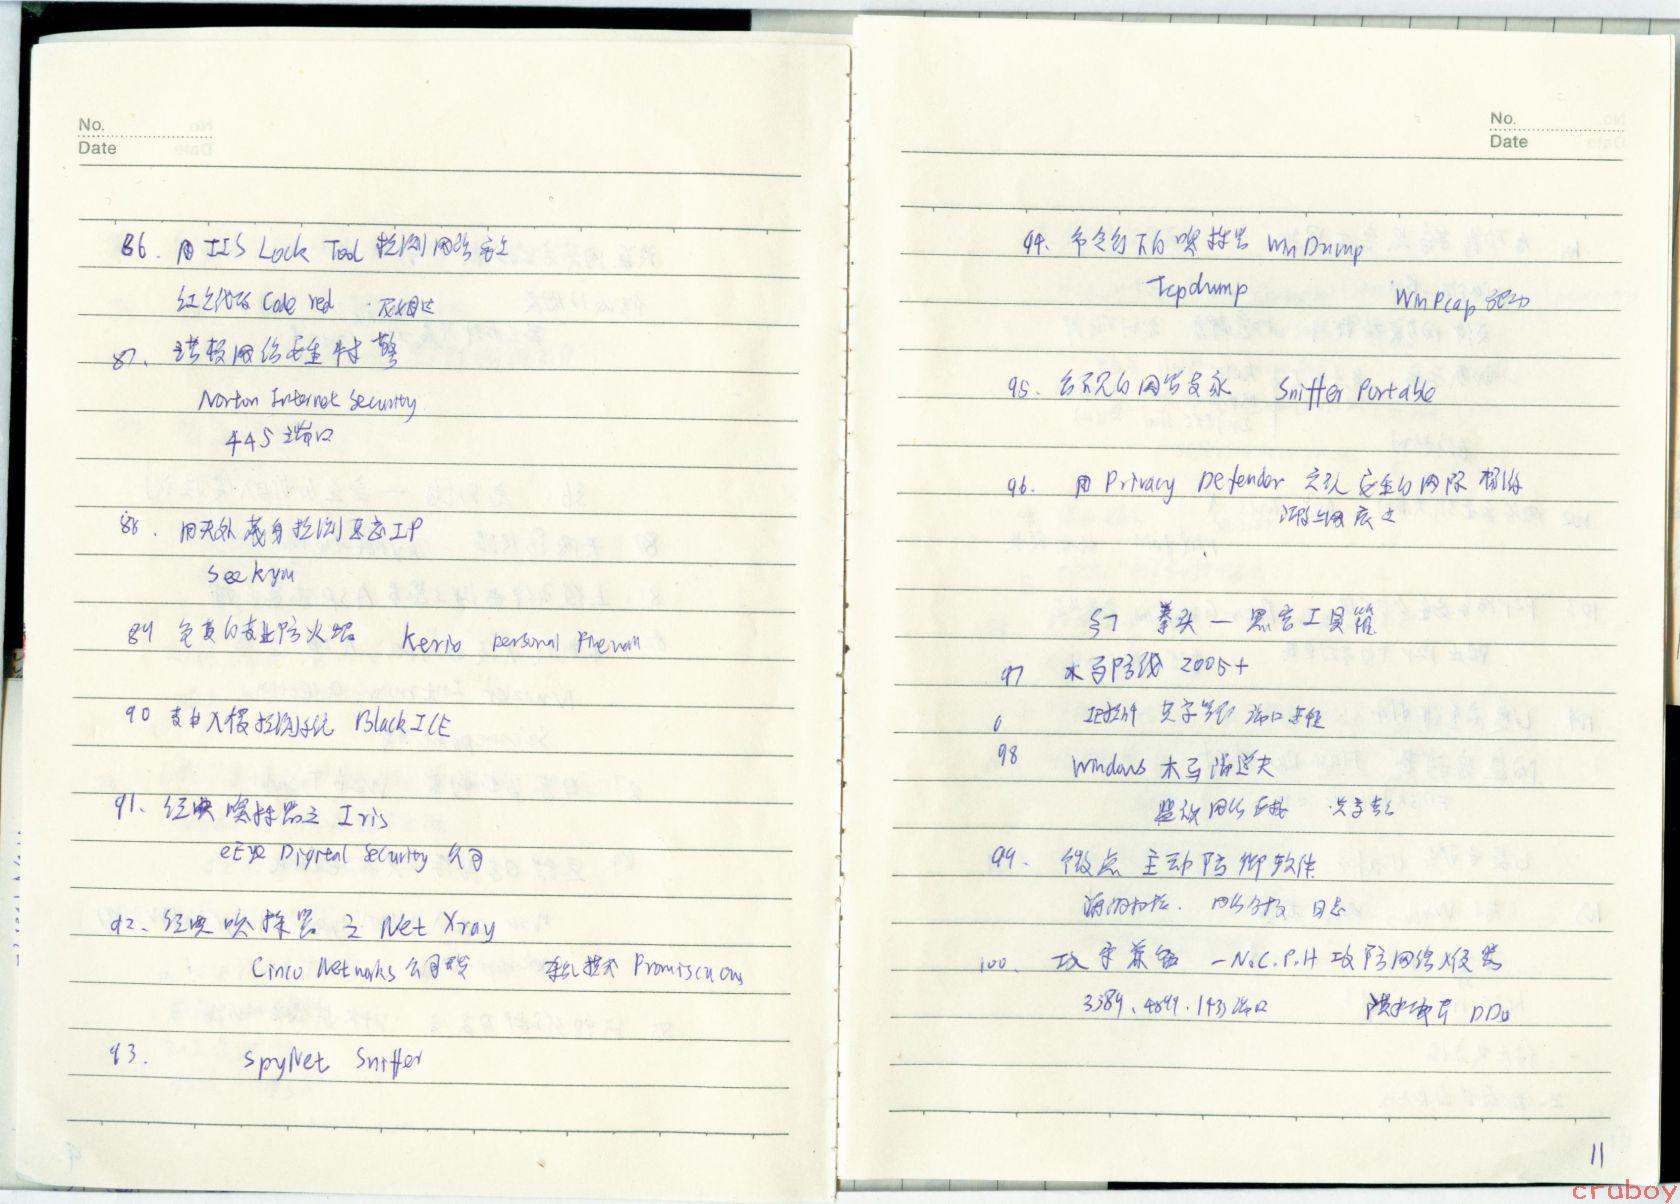 No.
Date
86. 用 IIS Lock Tool 检测网站安全
红色代码 Code red
87. 诺顿网络安全特警
Norton Internet Security
445 端口
88. 用天外藏身检测 IP
89 免费的专业防火墙 Kerio personal Firewall
90 专业入侵检测系统 BlackICE
91. 经典嗅探器之 Iris
eEye Digital Security 公司
92. 经典嗅探器之 Net Xray
Cinco Networks 公司开发 技术 Promiscuous
93. SpyNet Sniffer
No.
Date
94. 命令行下的嗅探器 WinDump
Tcpdump WinPcap 驱动
95. 的网络专家 Sniffer Portable
96. 用 Privacy Defender 实现安全的网际
§7 拳头 — 黑客工具箱
97 木马防线 2005+
IE插件 共享 端口
98 Windows 木马清道夫
监视网络连接 共享
99. 微点主动防御软件
网络 日志
100. 攻守兼备 — N.C.P.H 攻防网络
3389. 4899. 1433端口 洪水 DDo
11
cruboy